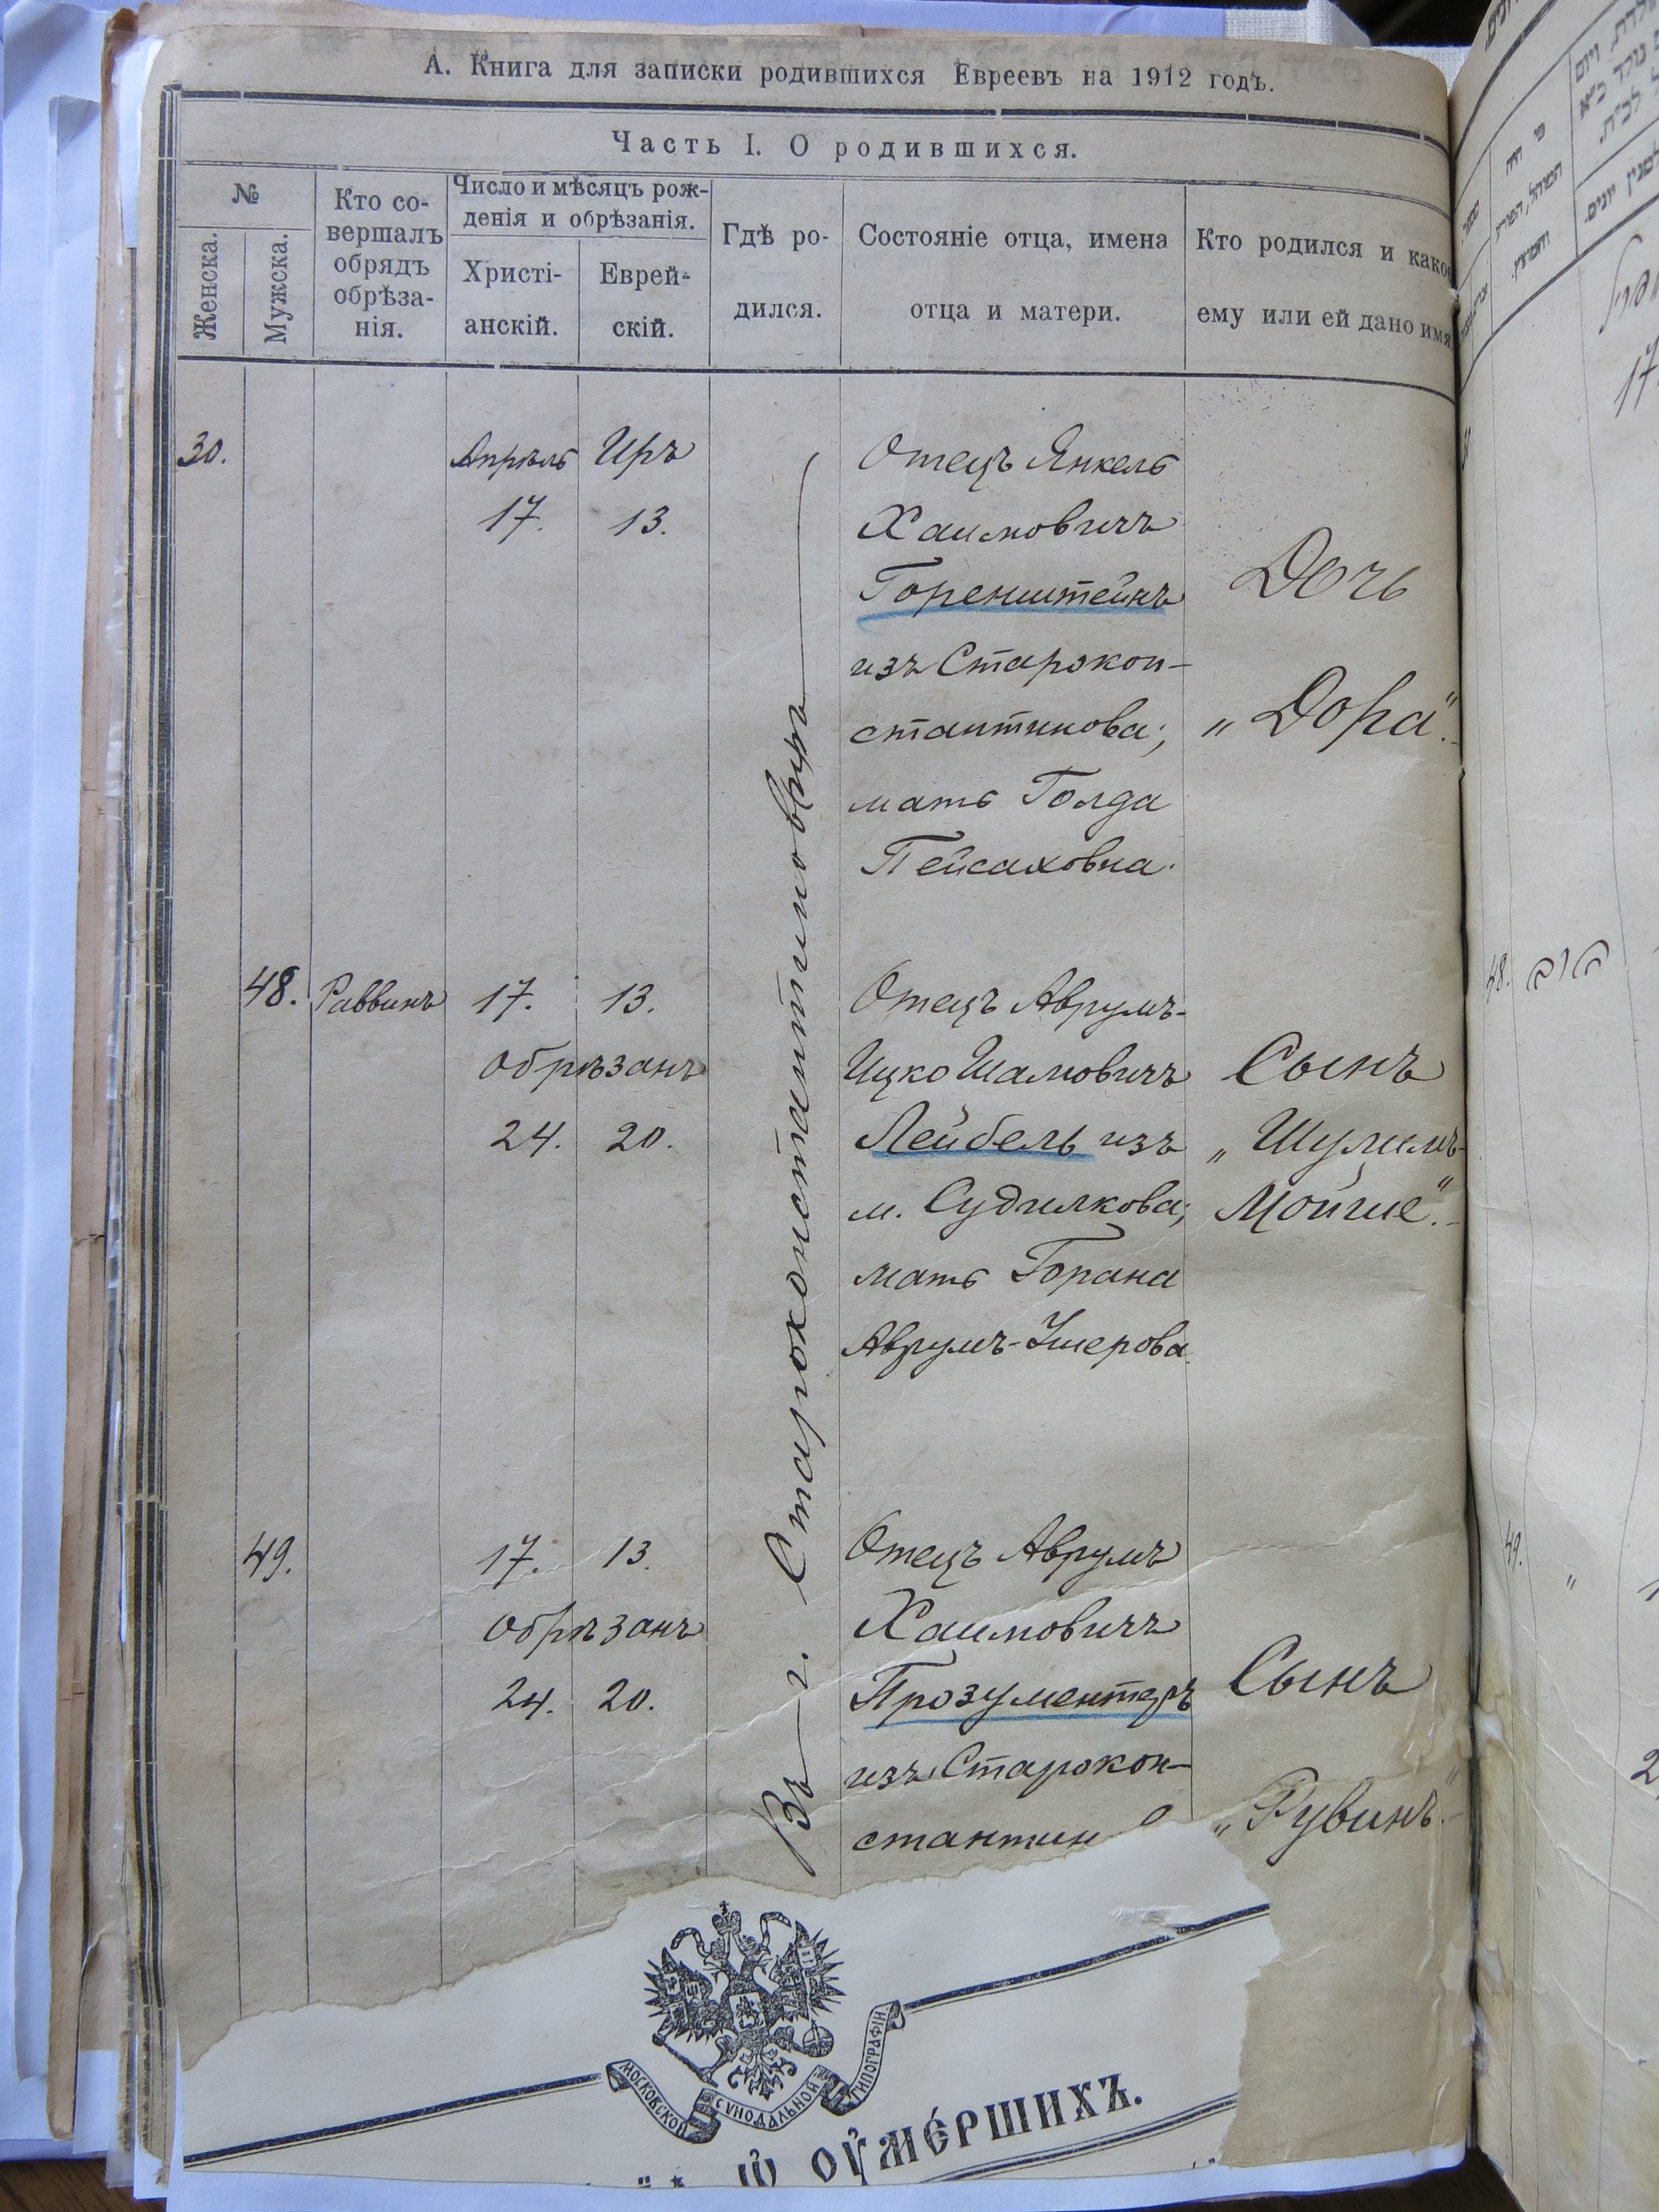 А. Книга для записки родившихся Евреевъ на 1912 годъ.
Часть I. О родившихся.
№
Женска.
Мужска.
Кто со-
вершалъ
обрядъ
обрѣза-
нія.
Число и мѣсяцъ рож-
денія и обрѣзанія.
Христі-
анскій.
Еврей-
скій.
Гдѣ ро-
дился.
Состояніе отца, имена
отца и матери.
Кто родился и какое
ему или ей дано имя
30.
Апрѣль Иръ
17. 13.
Въ г. Староконстантиновѣ
Отецъ Янкель
Хаимовичъ
Горенштейнъ
изъ Старокон-
стантинова;
мать Голда
Пейсаховна.
Дочь
„Дора".
48. Раввинъ 17. 13.
обрѣзанъ
24. 20.
Отецъ Аврумъ-
Ицко Шамовичъ
Лейбель изъ
м. Судилкова;
мать Горана
Аврумъ-Ушерова.
Сынъ
„Шулимъ-
Мойше".
49. 17. 13.
обрѣзанъ
24. 20.
Отецъ Аврумъ
Хаимовичъ
Прозументеръ
изъ Старокон-
стантин
Сынъ
„Рувинъ".
МОСКОВСКОЙ СѴНОДАЛЬНОЙ ТИПОГРАФІИ
Ѡ ОУМЕ́РШИХЪ.
48. הרב
49. "
17